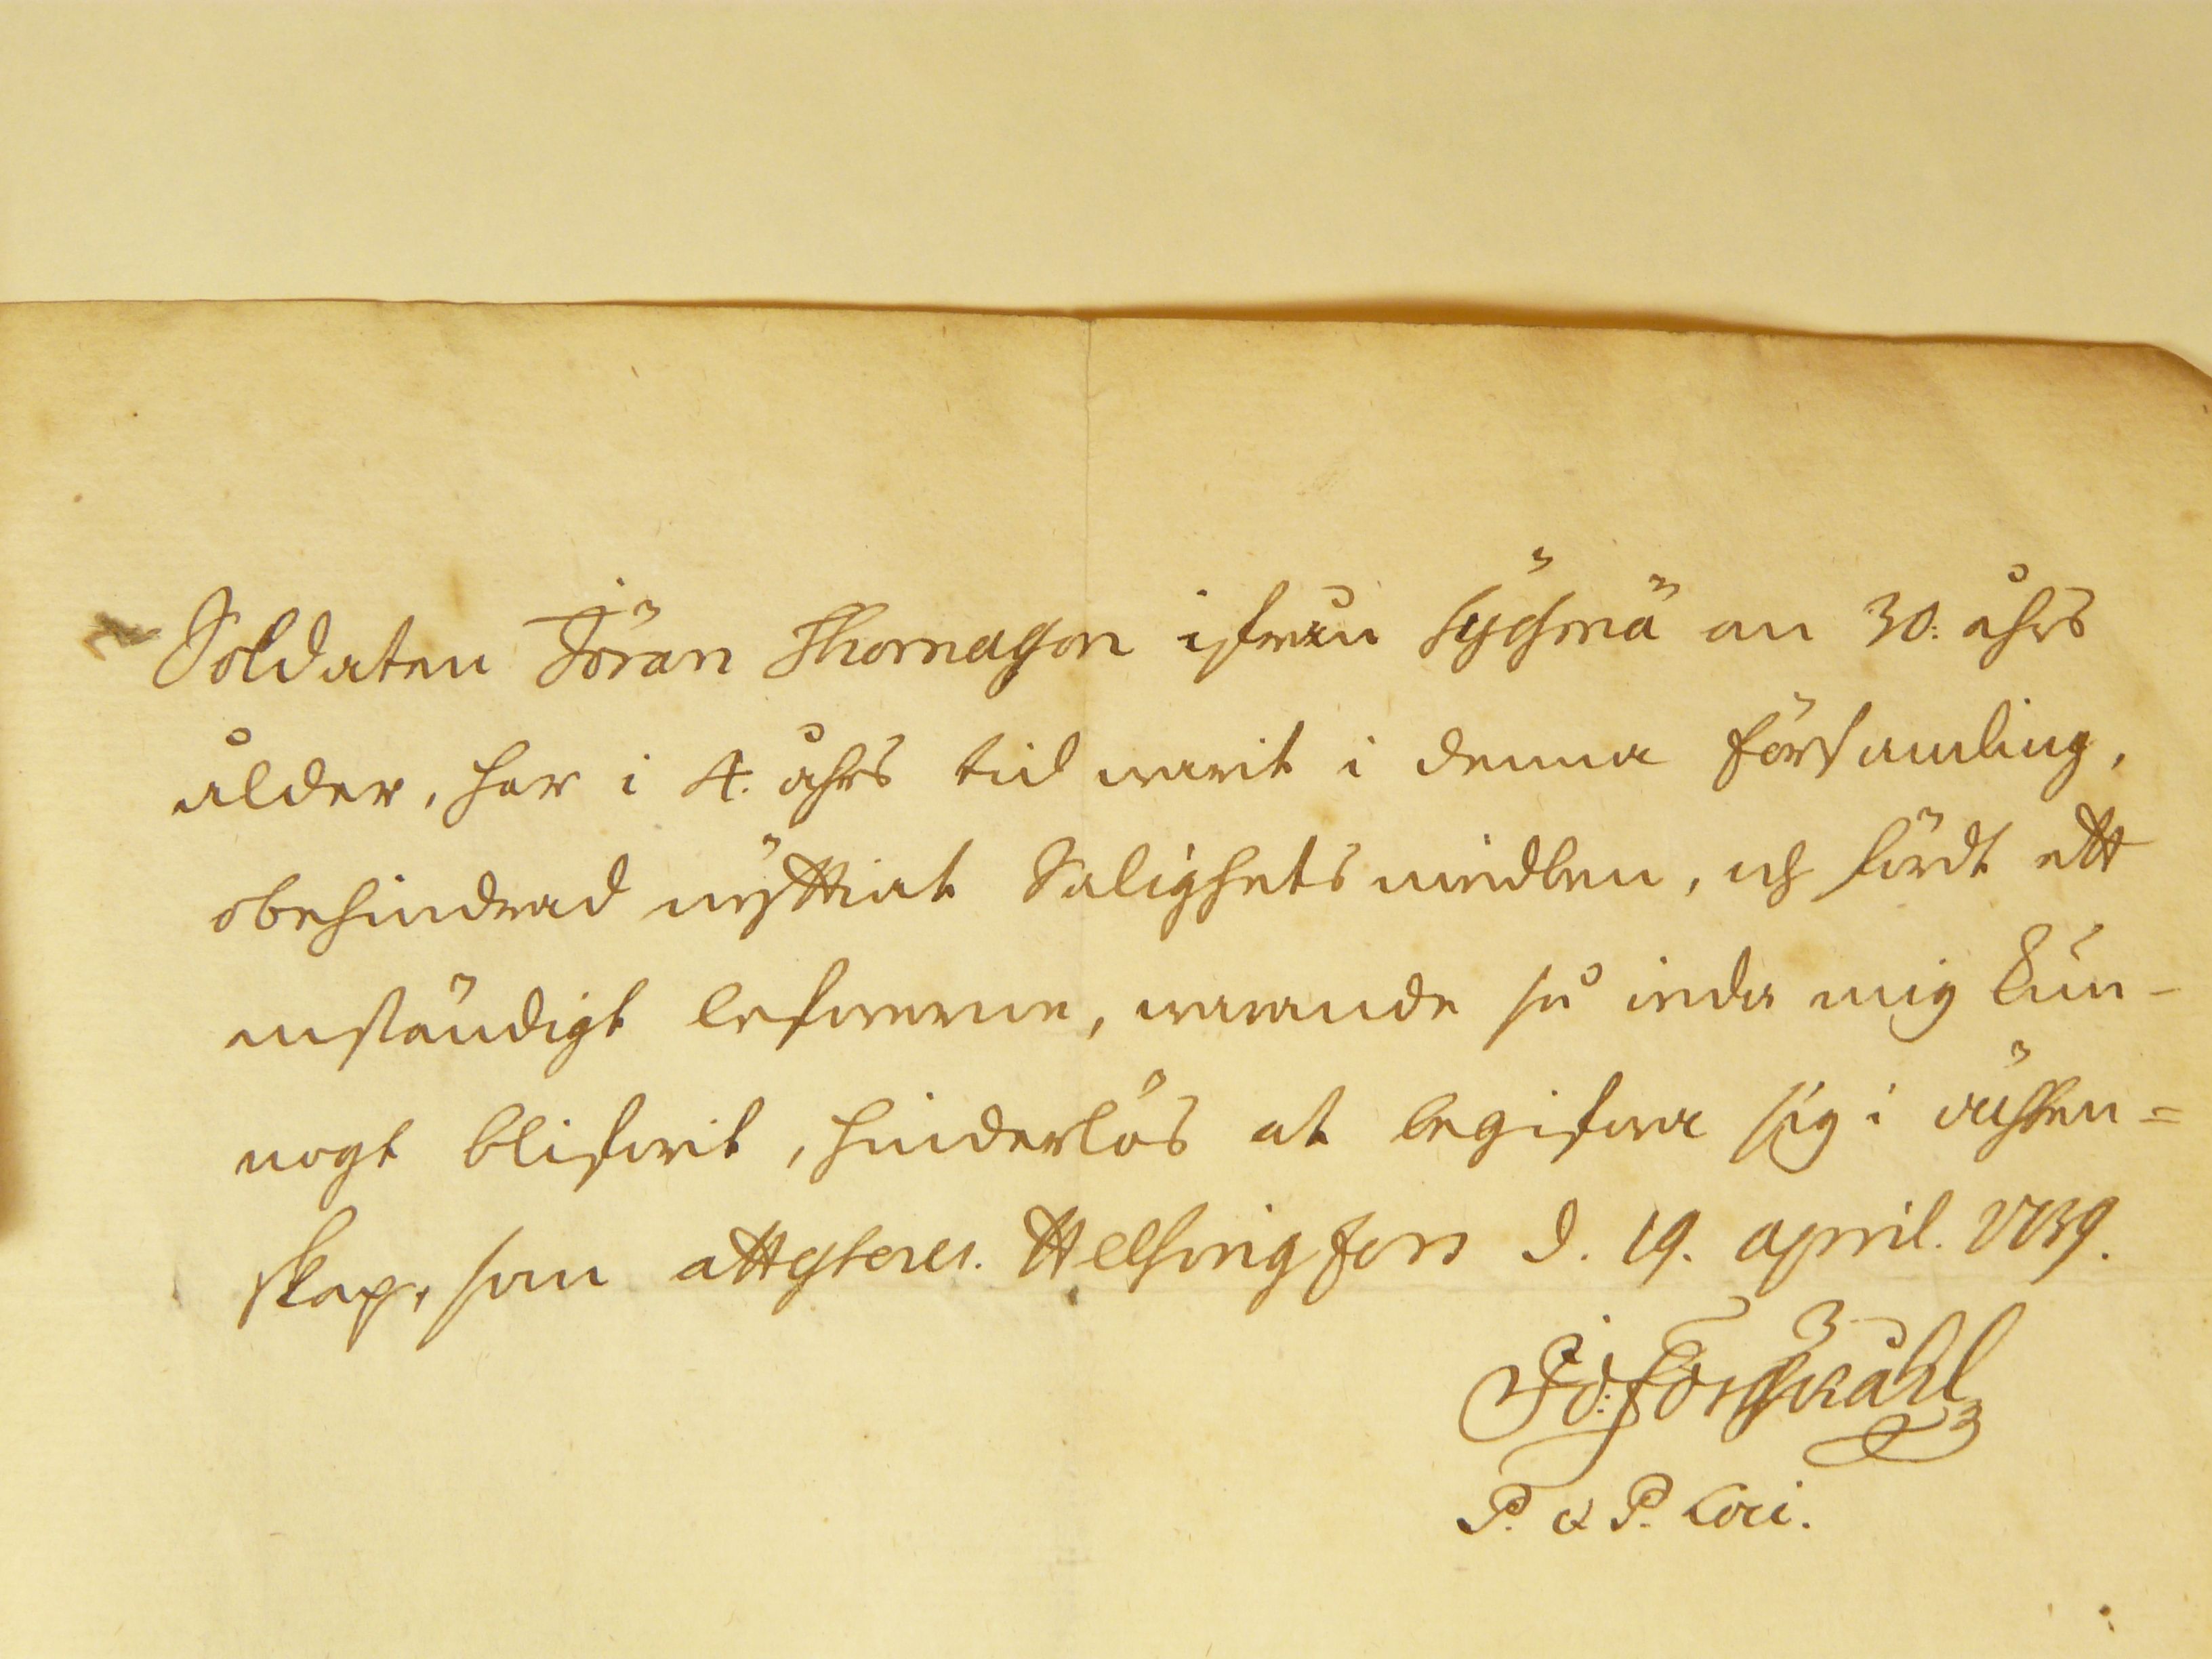 Soldaten Jöran Thomasson ifrån Sysmä an 30. åhrs
ålder, har i 4. åhrs tid warit i denna församling,
obehindrad nyttiat Salighets medlen, och fördt ett
anständigt lefwerne, warande så wida mig kun-
nogt blifwit, hinderlös at begifwa sig i ächten=
skap, som attesteres. Helsingfors d. 19. april. 1739.
P. & P. Loci.